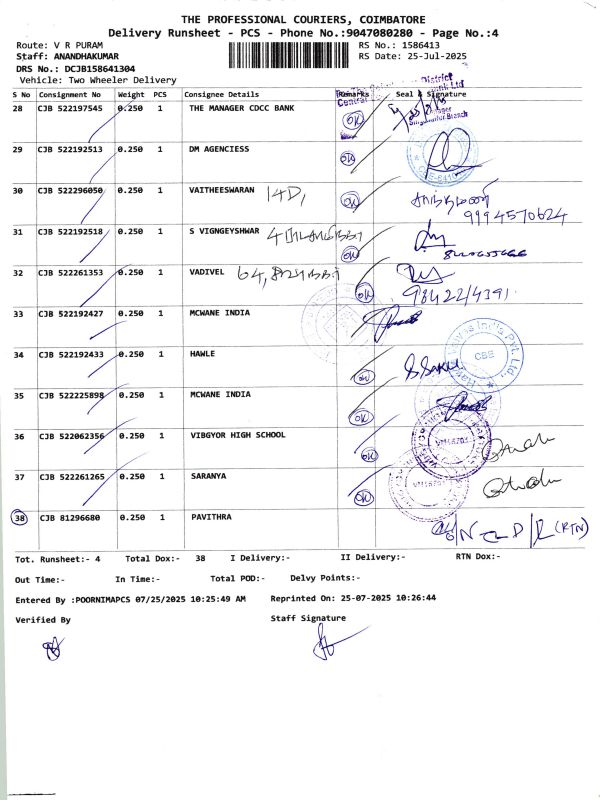 THE PROFESSIONAL COURIERS, COIMBATORE
Delivery Runsheet - PCS - Phone No.:9047080280 - Page No.:4
Route: V R PURAM RS No.: 1586413
Staff: ANANDHAKUMAR RS Date: 25-Jul-2025
DRS No.: DCJB158641304
Vehicle: Two Wheeler Delivery
S No Consignment No Weight PCS Consignee Details Remarks Seal & Signature
28 CJB 522197545 0.250 1 THE MANAGER CDCC BANK OK
29 CJB 522192513 0.250 1 DM AGENCIESS OK
30 CJB 522296050 0.250 1 VAITHEESWARAN 14D, OK
9994570624
31 CJB 522192518 0.250 1 S VIGNGEYSHWAR OK
32 CJB 522261353 0.250 1 VADIVEL 64, OK
9842214391
33 CJB 522192427 0.250 1 MCWANE INDIA
34 CJB 522192433 0.250 1 HAWLE OK
35 CJB 522225898 0.250 1 MCWANE INDIA OK
36 CJB 522062356 0.250 1 VIBGYOR HIGH SCHOOL OK
37 CJB 522261265 0.250 1 SARANYA OK
38 CJB 81296680 0.250 1 PAVITHRA (RTN)
Tot. Runsheet:- 4 Total Dox:- 38 I Delivery:- II Delivery:- RTN Dox:-
Out Time:- In Time:- Total POD:- Delvy Points:-
Entered By :POORNIMAPCS 07/25/2025 10:25:49 AM Reprinted On: 25-07-2025 10:26:44
Verified By Staff Signature